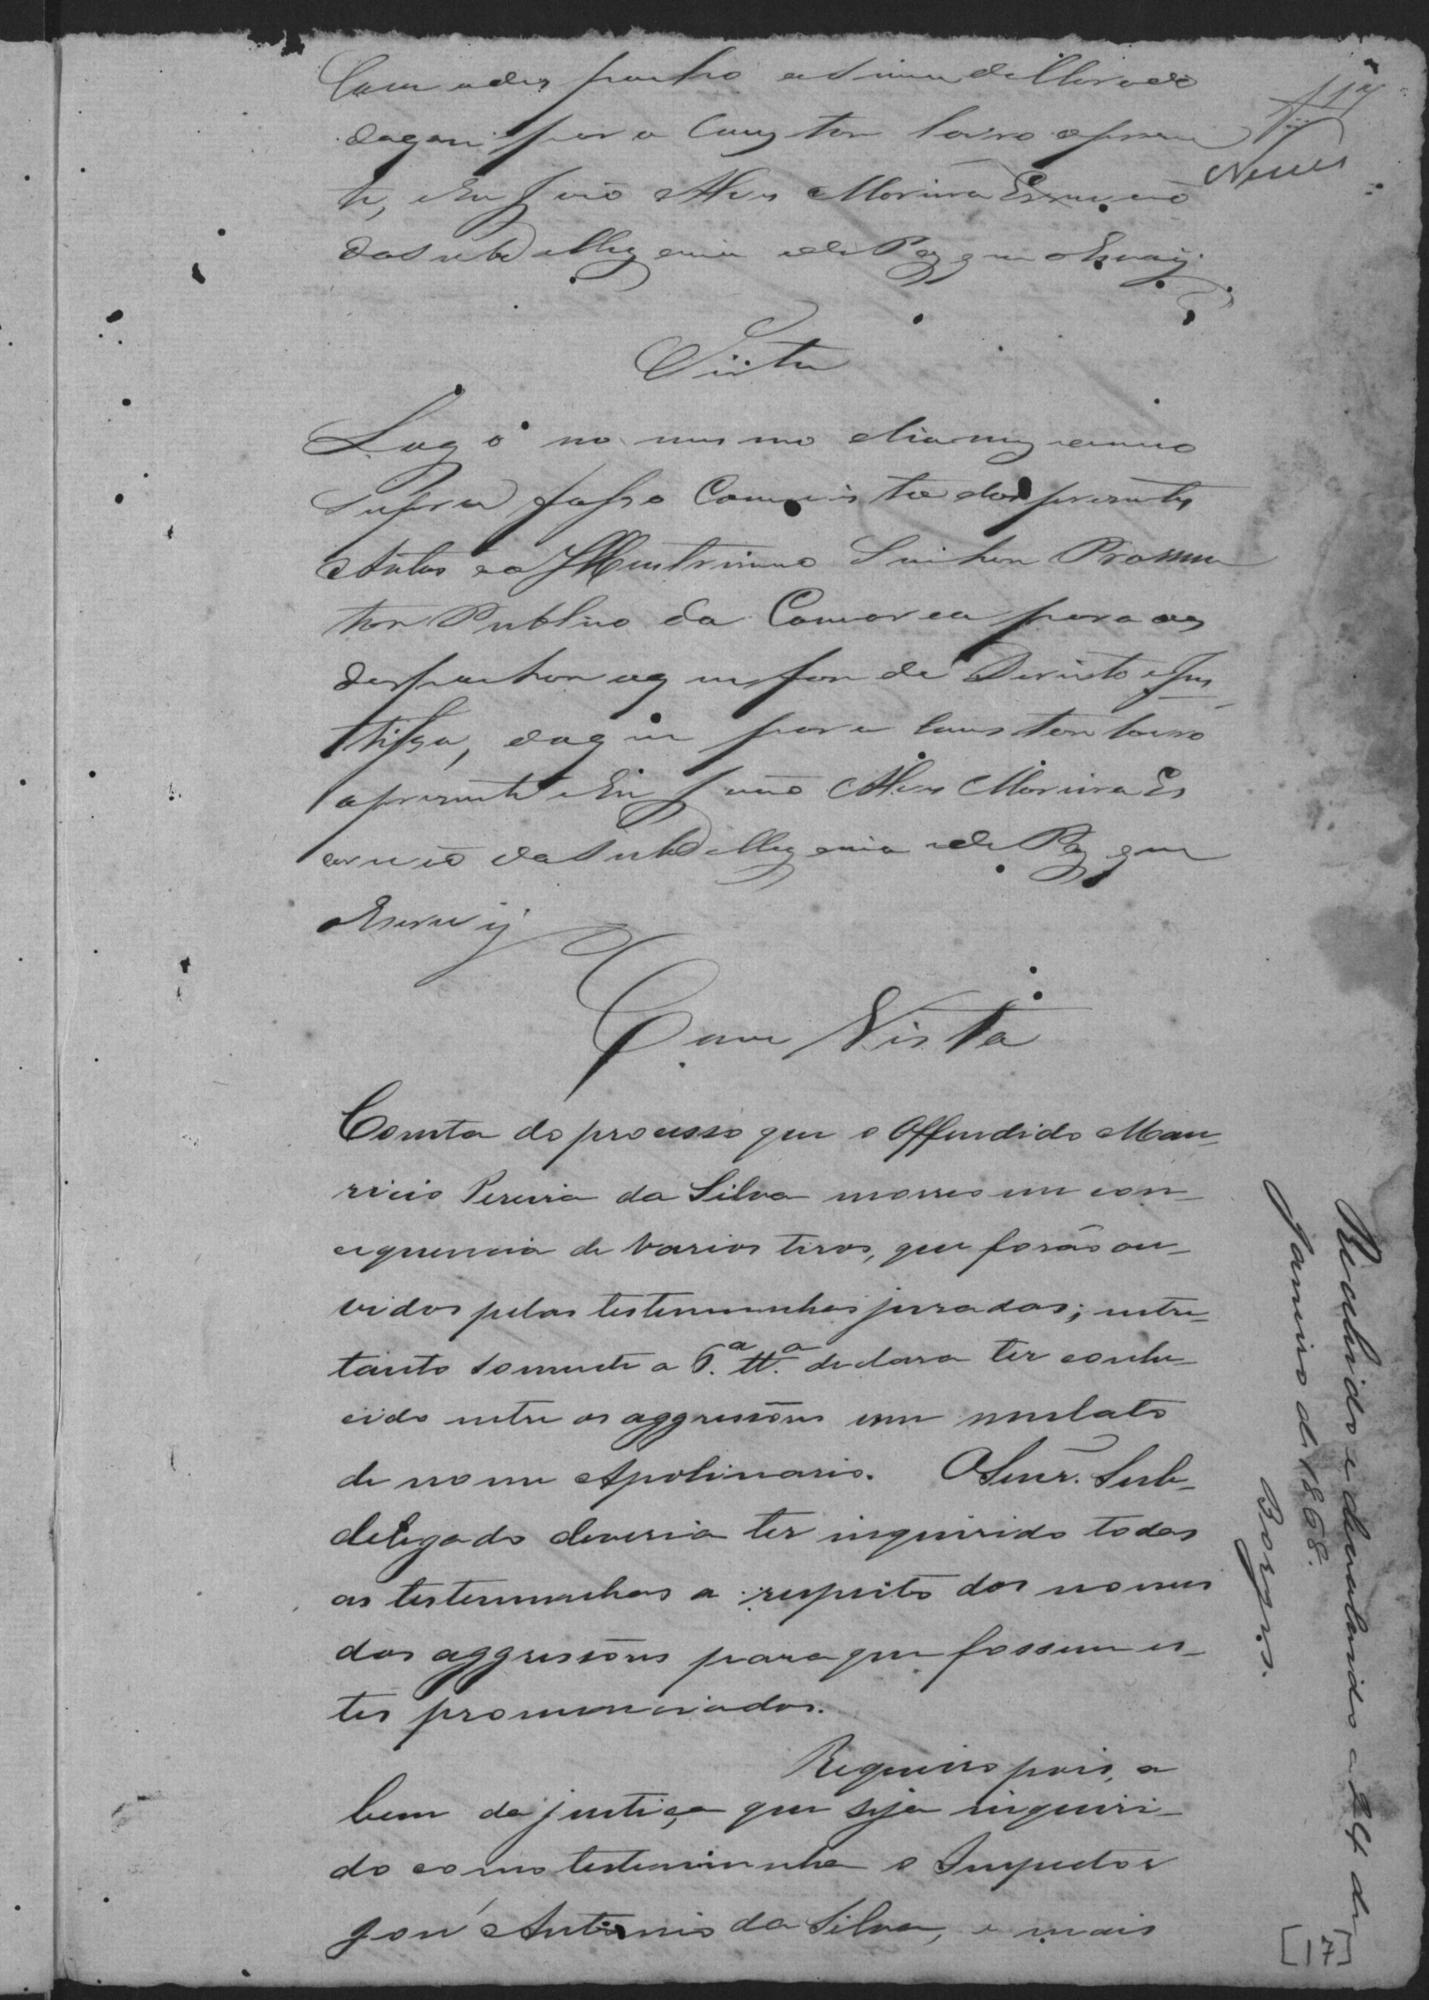 Com o des pacho assima de Clarado
do que para Cons tar lavro apresen
te, Eu João Alves Moreira Escrivão
da Sub dellegacia e de Paz que o Escrevy
17
Neves
Vista
Logo no mesmo dia mez e anno
supra fasso Com vista dos presentes
Autos ao Illustrissimo Senhor Promu
tor Publico da Comarca para os
despachar como for de Direito e Jus
tissa, do que para Constar lavro
apresente Eu João Alves Moreira Es
crivão da Sub dellegacia e de Paz que
o Escrevy
Com Vista
Consta do processo que o Offendido Mau-
ricio Pereira da Silva morreo em con-
cequencia de varios tiros, que forão ou-
vidos pelas testemunhas juradas; entre-
tanto somente a 6.ª tt.ª declara ter conhe-
cido entre os aggressores um mulato
de nome Apolinario. O Senr. Sub-
delegado deveria ter inquirido todas
as testemunhas a respeito dos nomes
dos aggressores para que fossem es-
tes pronunciados.
Requeiro pois, a
bem da justiça que seja inquiri-
do como testemunha o Inspector
José Antonio da Silva, e mais
Recebido e devolvido a 24 de
Janeiro de 1868.
Borges.
[17]